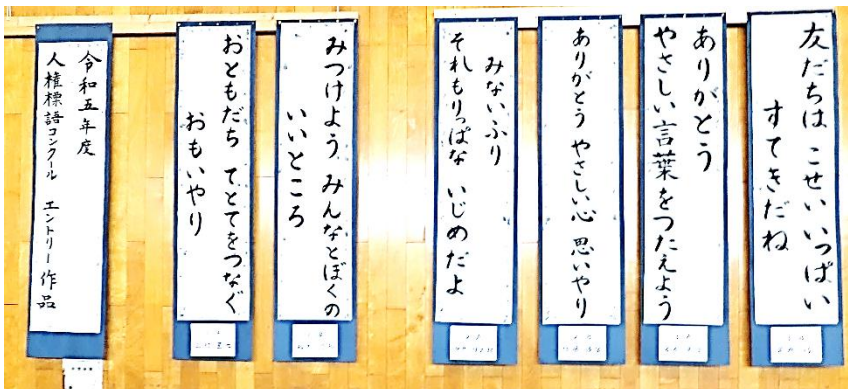 友だちは こせいいっぱい
すてきだね
ありがとう
やさしい言葉をつたえよう
ありがとう やさしい心 思いやり
みないふり
それもりっぱな いじめだよ
みつけよう みんなとぼくの
いいところ
おともだち てとてをつなぐ
おもいやり
令和五年度
人権標語コンクール エントリー作品